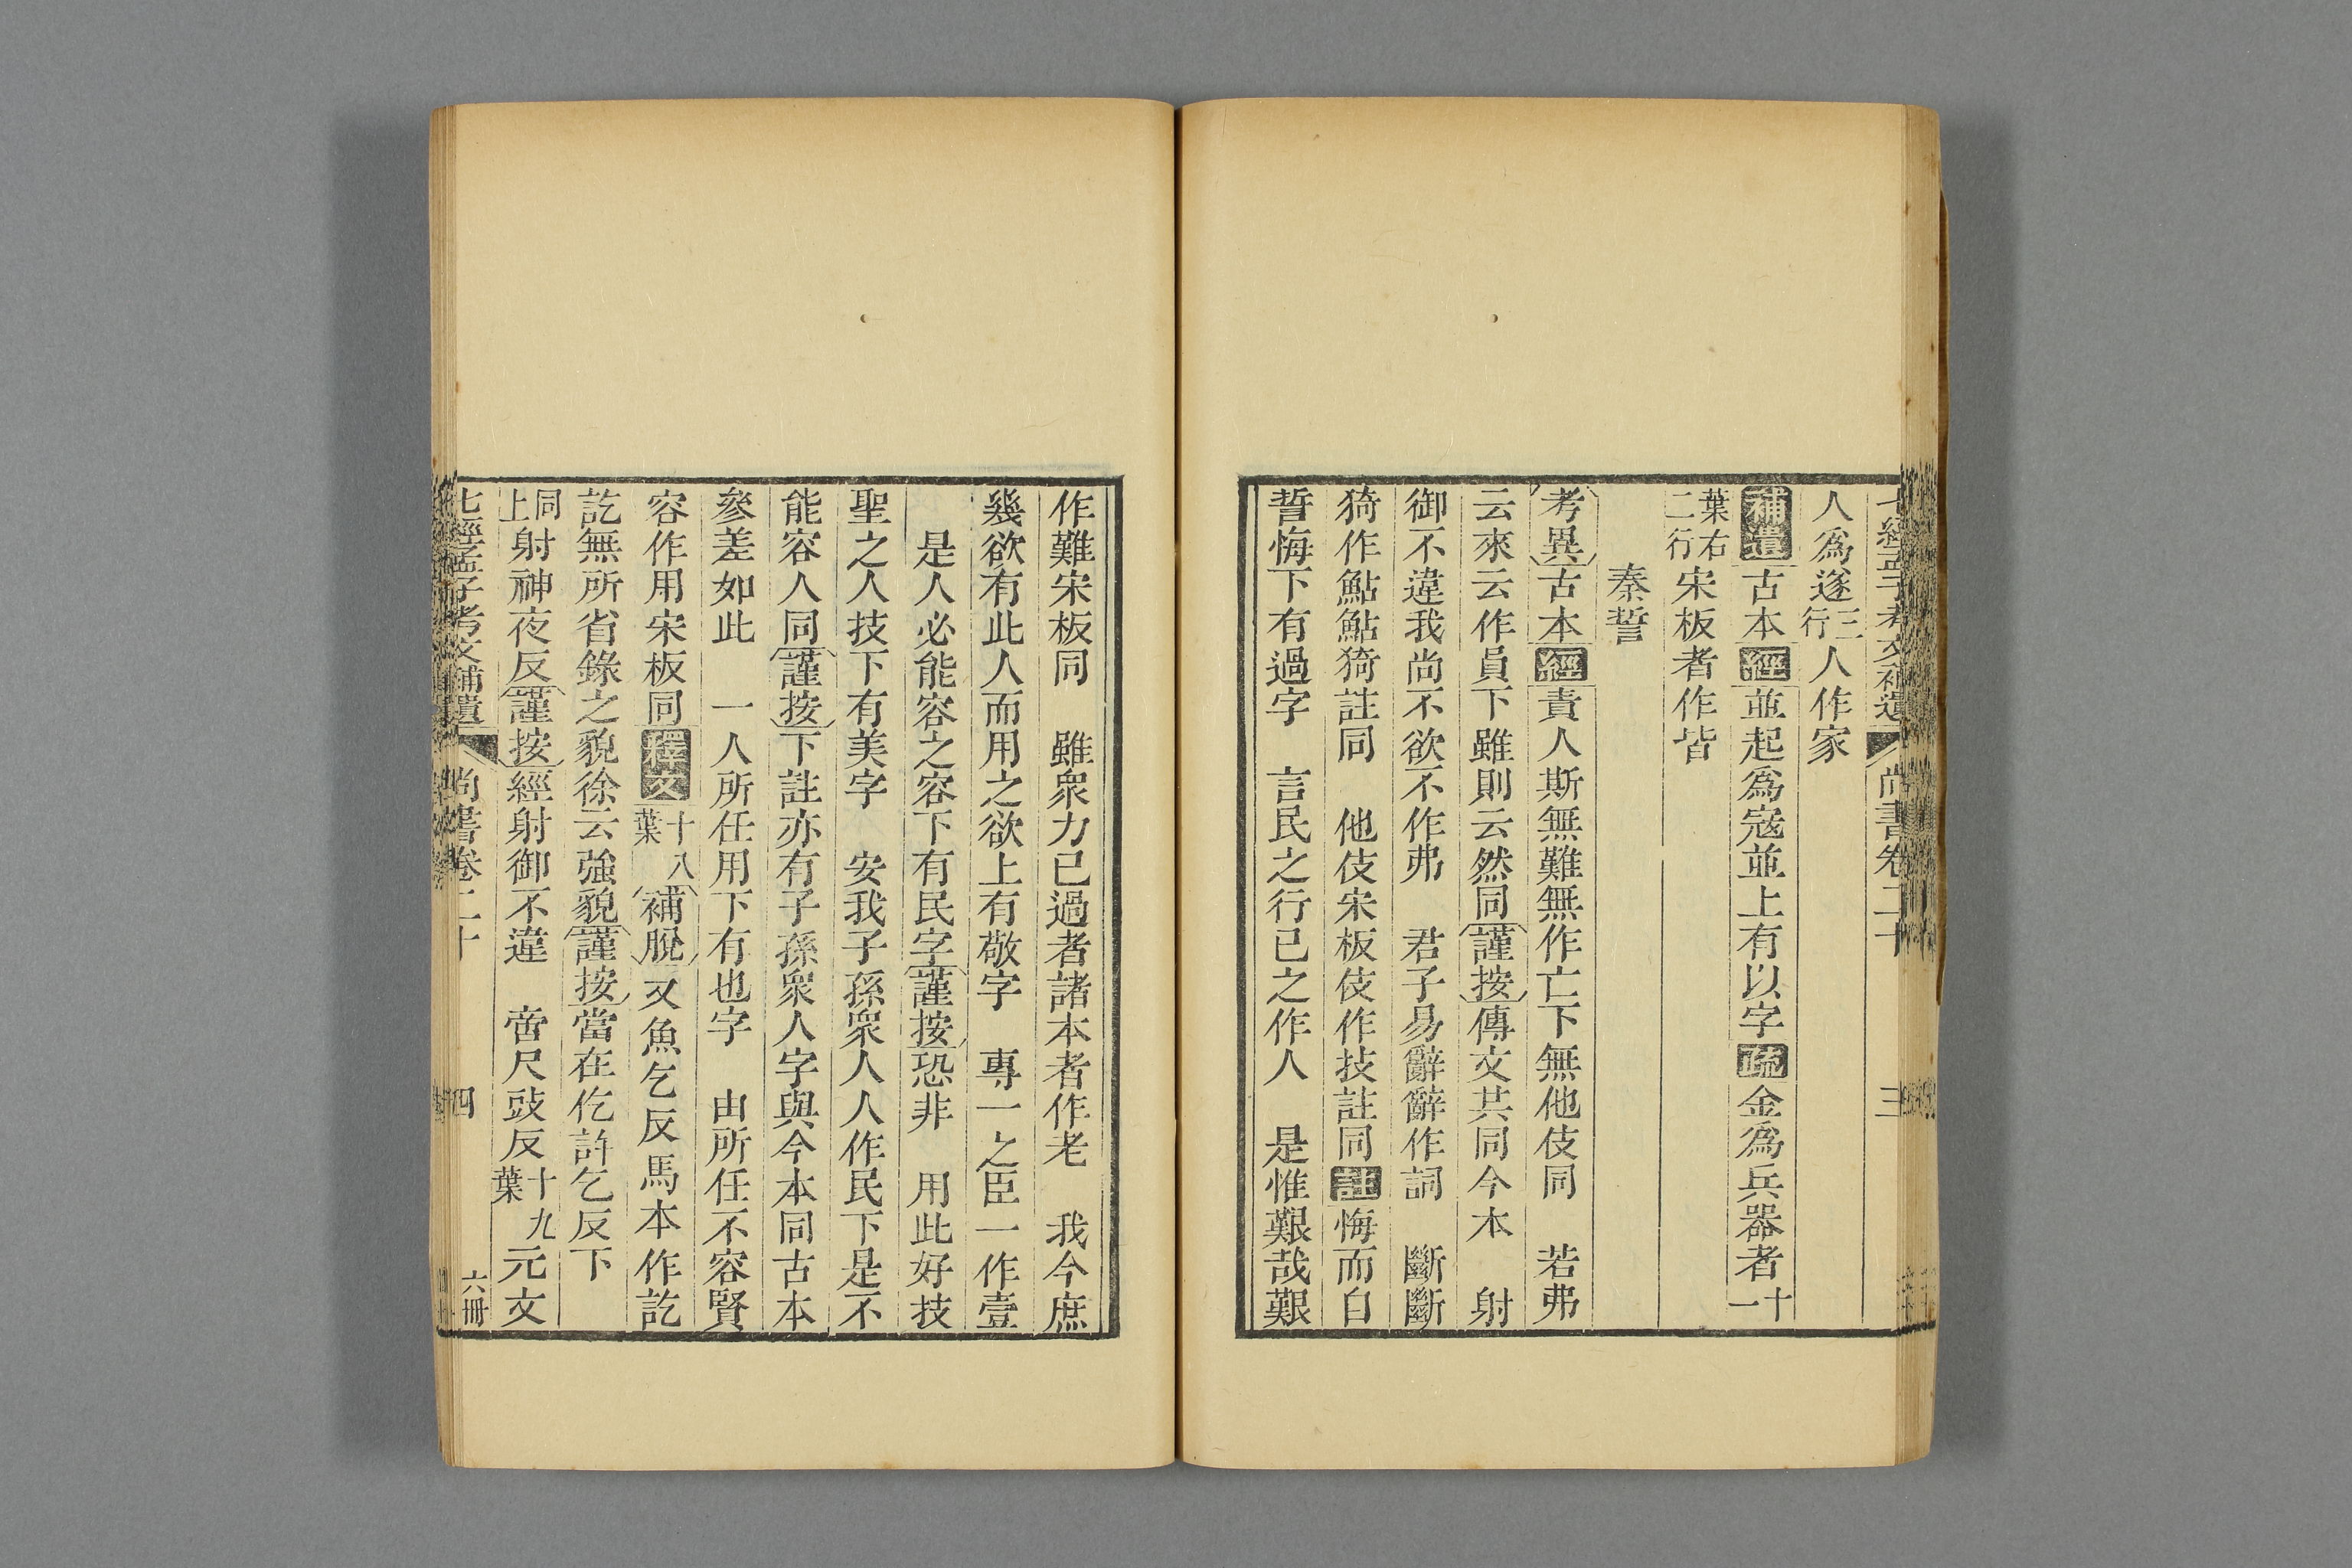 七經孟子考文補遺 尚書卷二十 三
人爲遂三行人作家
補遺古本經並起爲寇並上有以字疏金爲兵器者十一
葉右二行宋板者作皆
秦誓
考異古本經責人斯無難無作亡下無他伎同 若弗
云來云作員下雖則云然同謹按傳文其同今本 射
御不違我尚不欲不作弗 君子易辭辭作詞 斷斷
猗作鮎鮎猗註同 他伎宋板伎作技註同註悔而自
誓悔下有過字 言民之行已之作人 是惟艱哉艱
作難宋板同 雖衆力已過者諸本者作老 我今庶
幾欲有此人而用之欲上有敬字 專一之臣一作壹
是人必能容之容下有民字謹按恐非 用此好技
聖之人技下有美字 安我子孫衆人人作民下是不
能容人同謹按下註亦有子孫衆人字與今本同古本
參差如此 一人所任用下有也字 由所任不容賢
容作用宋板同釋文十八葉補脫又魚乞反馬本作訖
訖無所省錄之貌徐云強貌謹按當在仡許乞反下
同上射神夜反謹按經射御不違 啻尺豉反十九葉元文
七經孟子考文補遺 尚書卷二十 四 六冊